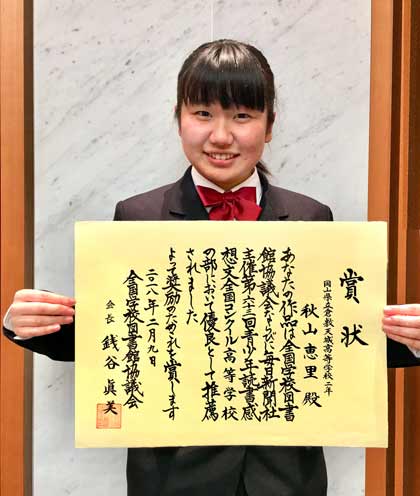 賞状
岡山県立倉敷天城高等学校二年
秋山恵里殿
あなたの作品は全国学校図書
館協議会ならびに毎日新聞社
主催第六十三回青少年読書感
想文全国コンクール高等学校
の部において優良として推薦
されました
よって奨励のためこれを賞します
二〇一八年二月九日
全国学校図書館協議会
会長 銭谷眞美